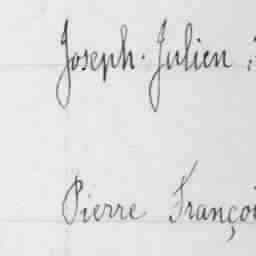 Joseph. Julien
Pierre Françoi